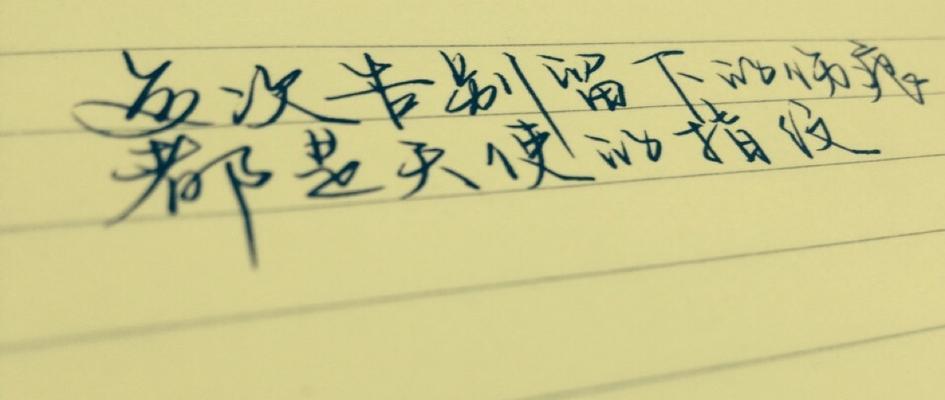 每次告别留下的伤痕
都是天使的指纹